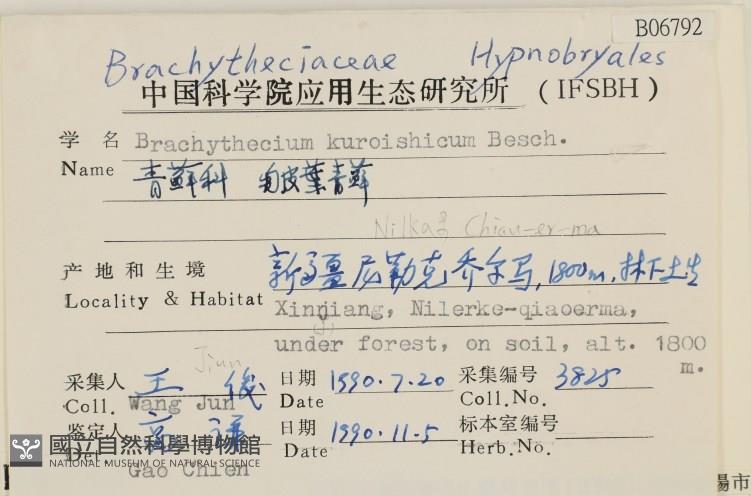 B06792
Brachytheciaceae Hypnobryales
中国科学院应用生态研究所 (IFSBH)
学名 Brachythecium kuroishicum Besch.
Name 青蘚科 皱葉青蘚
Nilka Chiau-er-ma
产地和生境 新疆尼勒克乔尔马,1800m,林下土生
Locality & Habitat Xinjiang, Nilerke-qiaoerma,
(j)
under forest, on soil, alt. 1800 m.
Jiun
采集人 王俊 日期 1990.7.20 采集编号 3825
Coll. Wang Jun Date Coll.No.
鉴定人 高谦 日期 1990.11.5 标本室编号
Det. Gao Chien Date Herb.No.
國立自然科學博物館
NATIONAL MUSEUM OF NATURAL SCIENCE
陽市